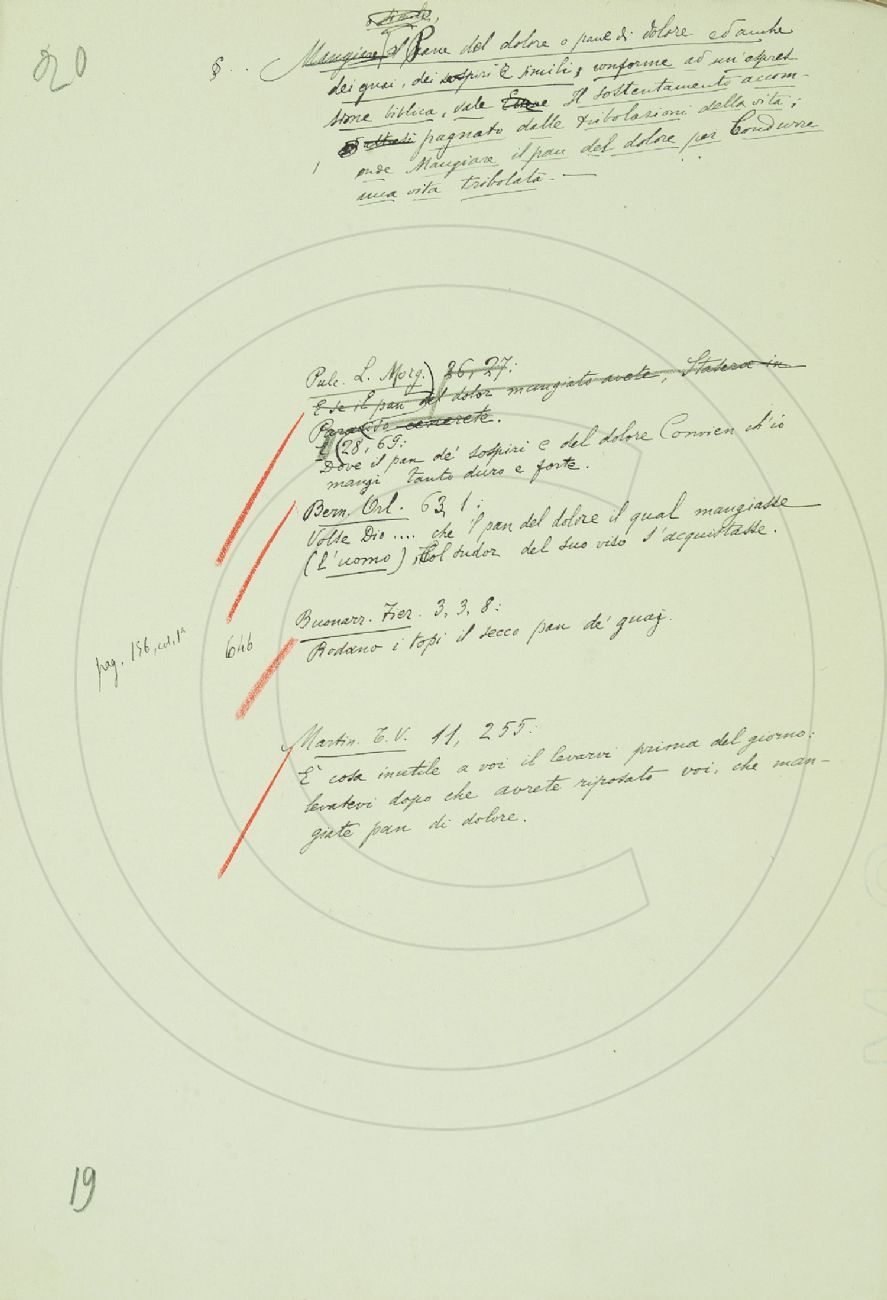 20
§... Mangiare il Pane del dolore o pane di dolore ed anche
dei guai, dei sospiri e simili, conforme ad un'espres
sione biblica, vale Il sostentamento accom-
pagnato dalle tribolazioni della vita;
onde Mangiare il pan del dolore per Condurre
una vita tribolata. —
Pulc. L. Morg. 26, 27:
E se il pan del dolor mangiato avete, Stasera in
Paradiso cenerete.
E (28, 69:
Dove il pan de' sospiri e del dolore Convien ch'io
mangi tanto duro e forte.
Bern. Orl. 63, 1:
Volse Dio .... che il pan del dolore il qual mangiasse
(L'uomo), Col sudor del suo viso s'acquistasse.
Buonarr. Fier. 3, 3, 8:
pag. 156, col. 1ª
646
Rodano i topi il secco pan de' guai.
Martin. T. V. 11, 255:
È cosa inutile a voi il levarvi prima del giorno:
levatevi dopo che avrete riposato voi, che man-
giate pan di dolore.
19